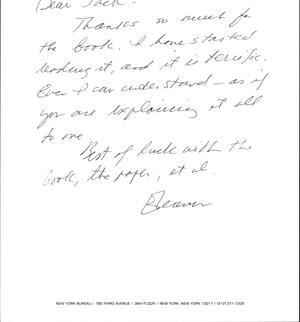 Dear Jack:
Thanks so much for
the book. I have started
reading it, and it is terrific.
Even I can understand – as if
you are explaining it all
to me.
Best of luck with the
book, the paper, et al.
NEW YORK BUREAU / 780 THIRD AVENUE / 38th FLOOR / NEW YORK, NEW YORK 10017 / (212) 371-1200